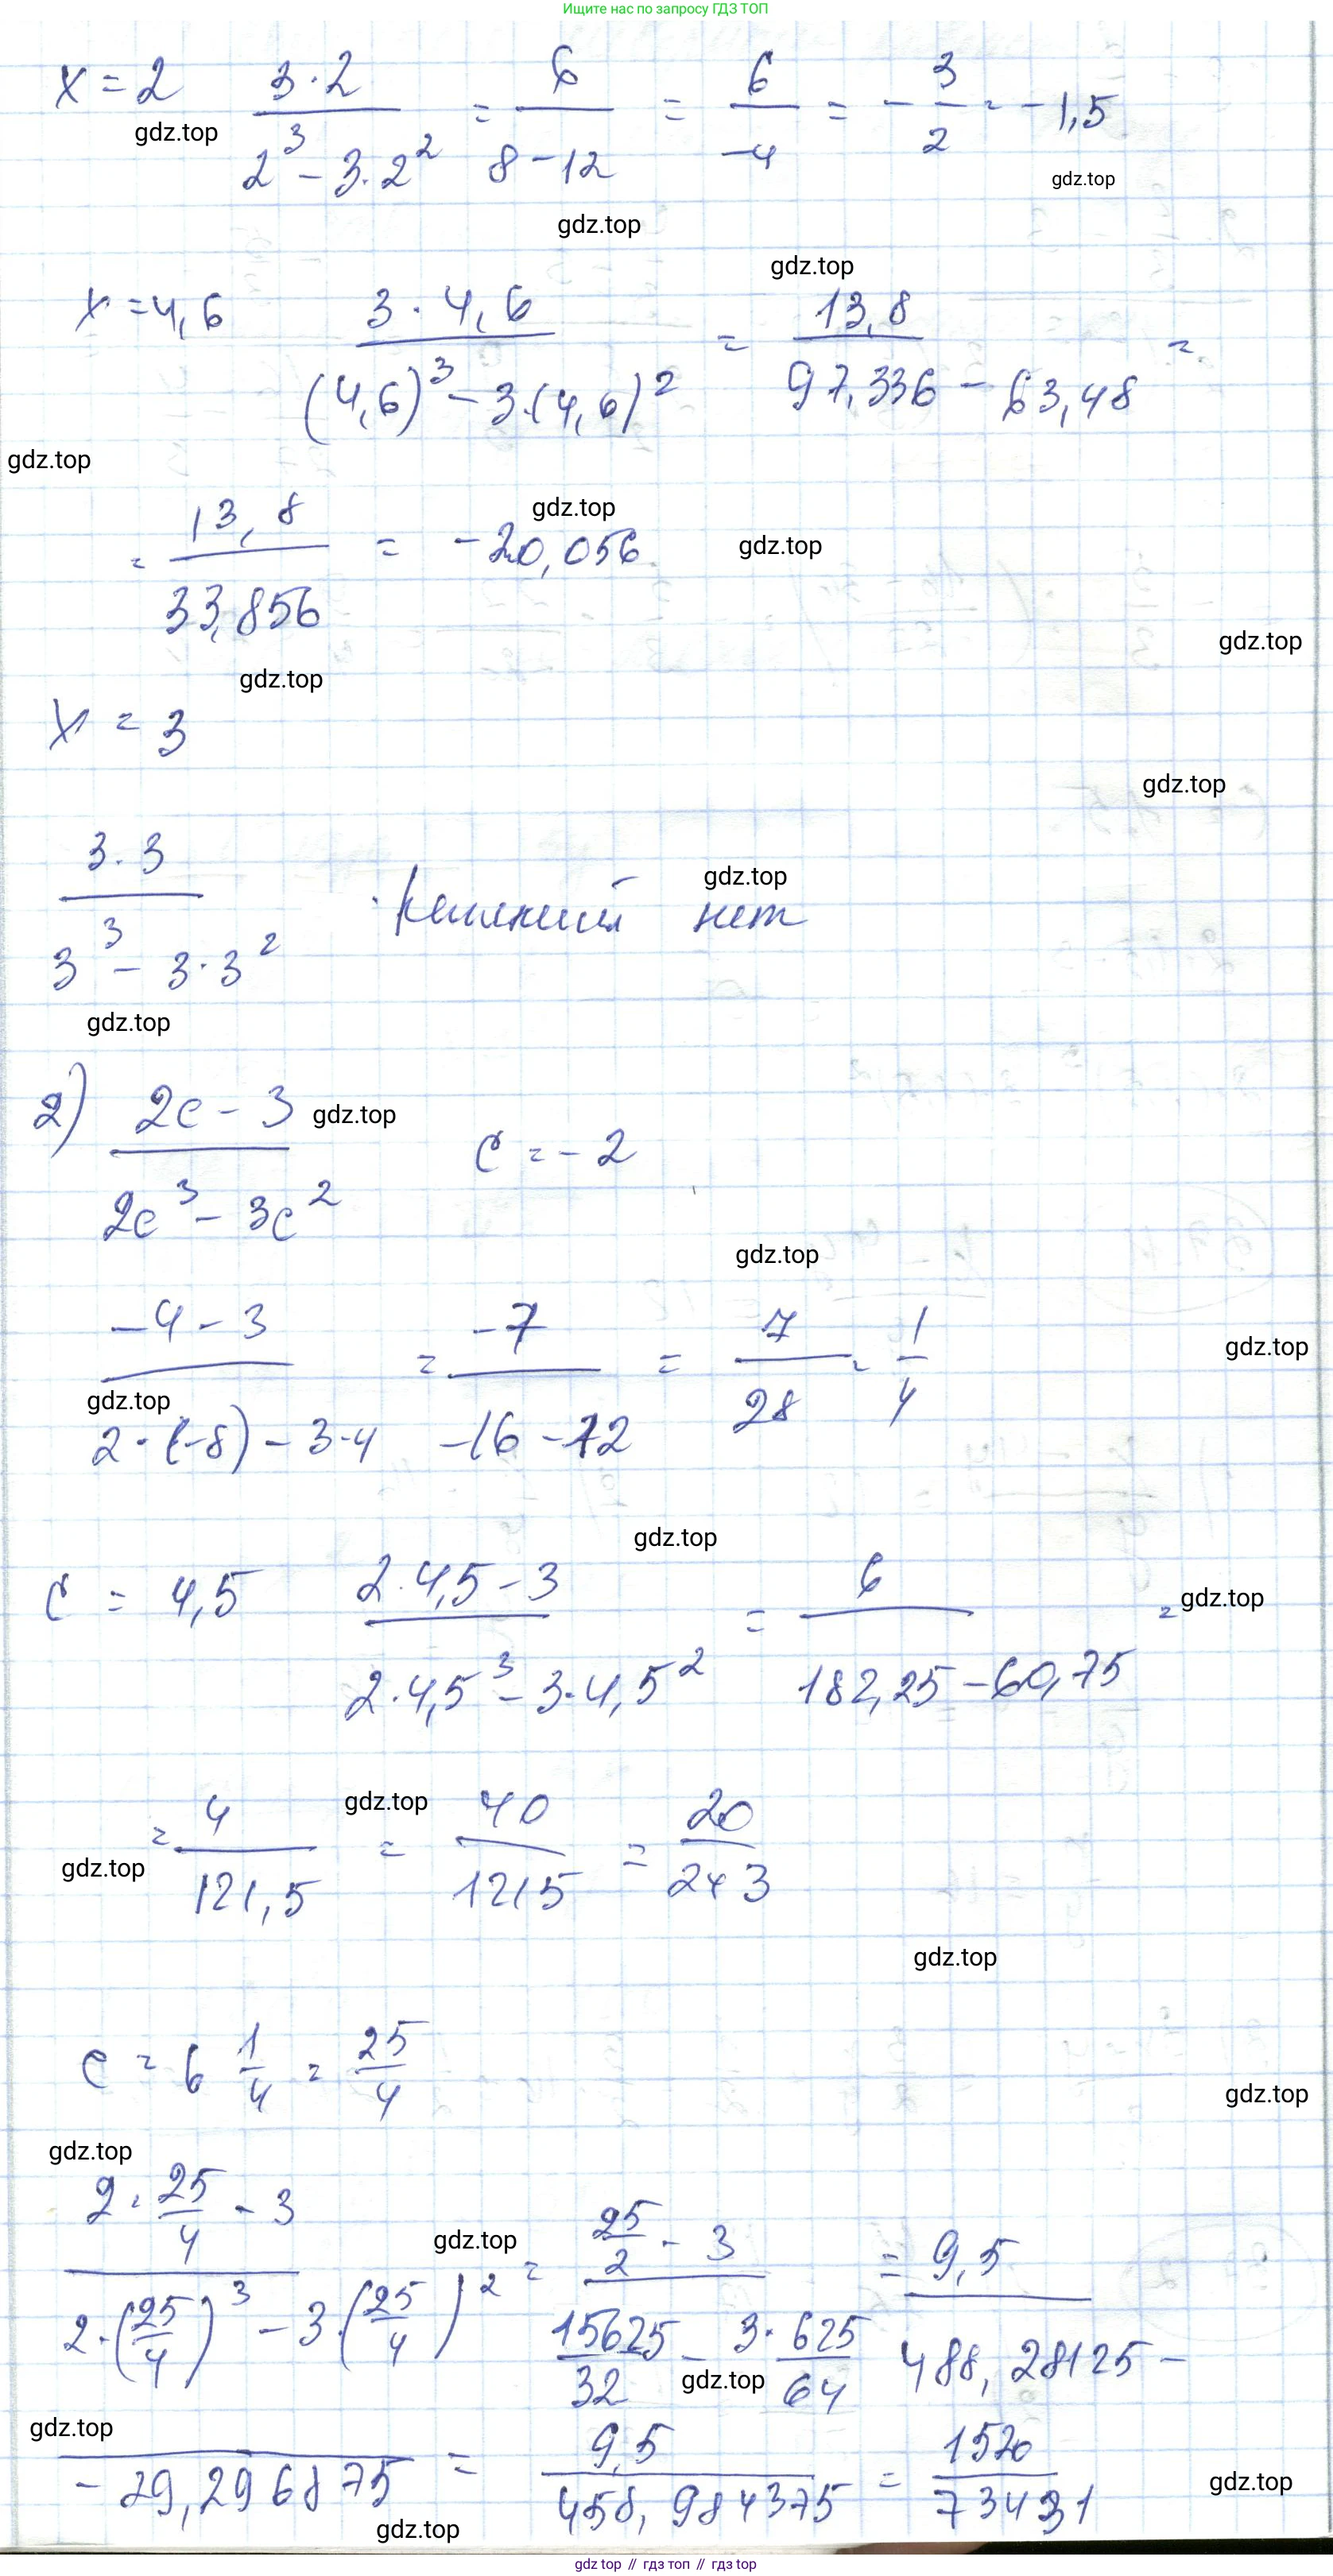 Ищите нас по запросу ГДЗ ТОП
x = 2   3·2 / (2³ - 3·2²) = 6 / (8 - 12) = 6 / -4 = - 3/2 = -1,5
gdz.top
gdz.top
gdz.top
gdz.top
x = 4,6   3·4,6 / ((4,6)³ - 3·(4,6)²) = 13,8 / (97,336 - 63,48) =
gdz.top
= 13,8 / 33,856 = -20,056
gdz.top
gdz.top
gdz.top
gdz.top
x = 3
gdz.top
3·3 / (3³ - 3·3²)   Решений нет
gdz.top
gdz.top
2) (2c - 3) / (2c³ - 3c²)   c = -2
gdz.top
gdz.top
(-4 - 3) / (2·(-8) - 3·4) = -7 / (-16 - 12) = 7/28 = 1/4
gdz.top
gdz.top
gdz.top
c = 4,5   (2·4,5 - 3) / (2·4,5³ - 3·4,5²) = 6 / (182,25 - 60,75) =
gdz.top
= 4 / 121,5 = 40 / 1215 = 20 / 243
gdz.top
gdz.top
gdz.top
c = 6 1/4 = 25/4
gdz.top
gdz.top
(2·25/4 - 3) / (2·(25/4)³ - 3·(25/4)²) = (25/2 - 3) / (15625/32 - 3·625/64) = 9,5 / (488,28125 -
gdz.top
gdz.top
gdz.top
- 29,296875) = 9,5 / 458,984375 = 1520 /
gdz.top
gdz.top
gdz.top // гдз топ // gdz top